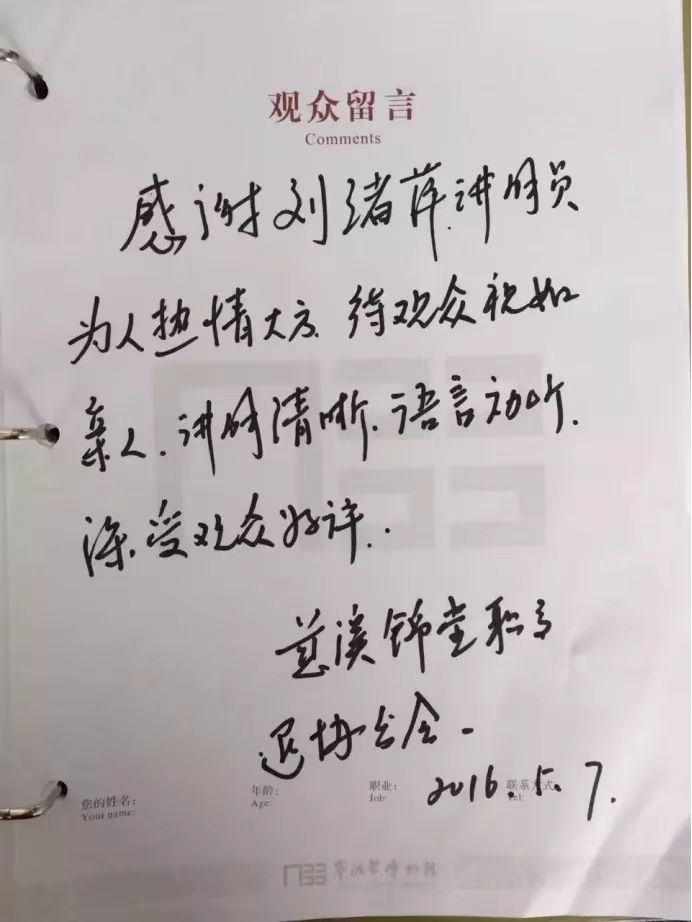 观众留言
Comments
感谢刘绪萍讲解员
为人热情大方 待观众视如
亲人.讲解清晰.语言动听.
深受观众好评..
慈溪锦堂职高
退协
2016.5.7.
您的姓名:
Your name:
年龄:
Age:
职业:
Job:
联系方式:
Tel:
寧波幫博物館